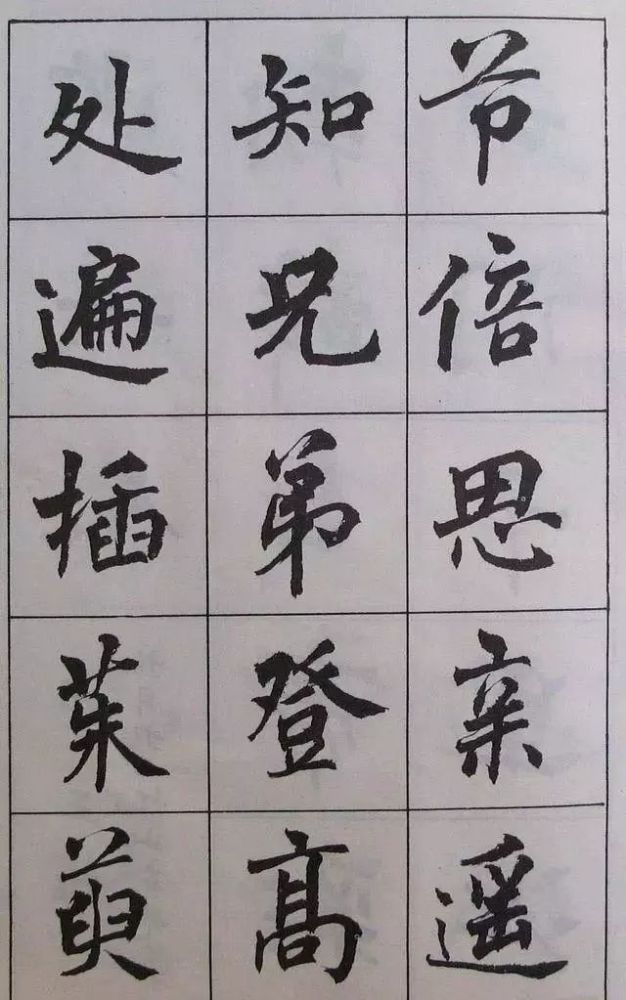 节倍思亲遥
知兄弟登高
处遍插茱萸